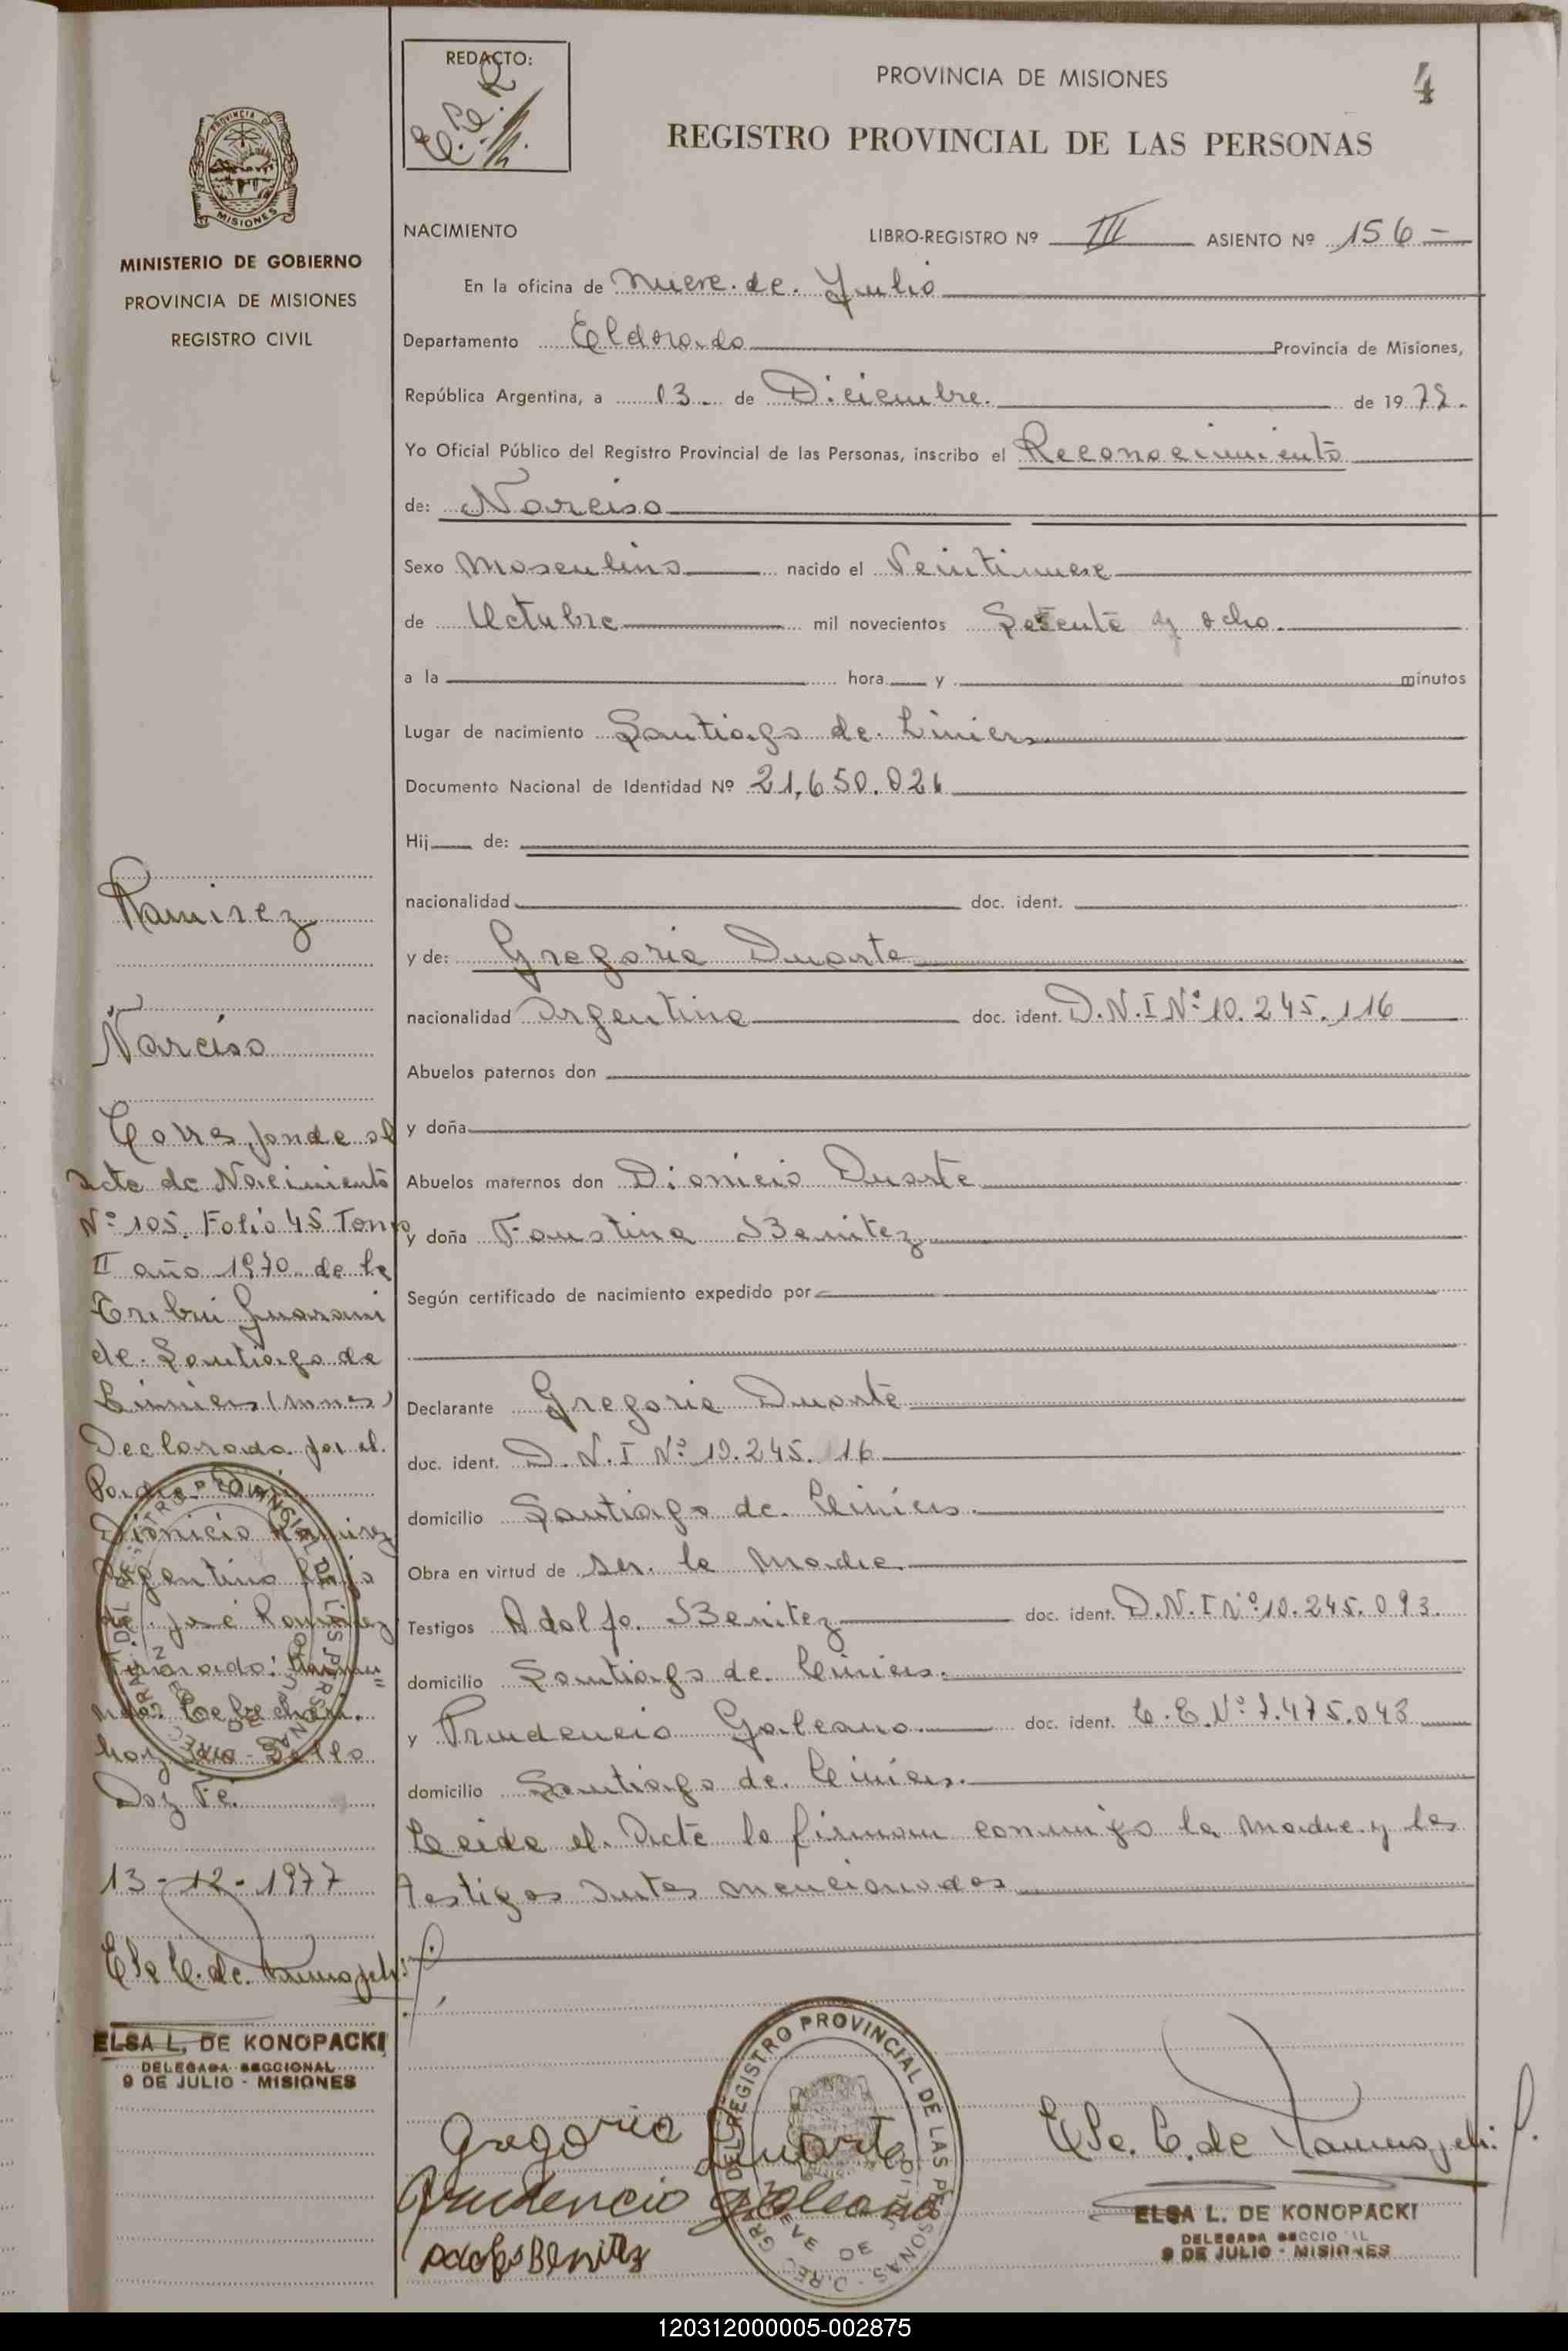 REDACTO:
PROVINCIA DE MISIONES
4
REGISTRO PROVINCIAL DE LAS PERSONAS
PROVINCIA DE
MISIONES
MINISTERIO DE GOBIERNO
PROVINCIA DE MISIONES
REGISTRO CIVIL
NACIMIENTO LIBRO-REGISTRO Nº III ASIENTO Nº 156
En la oficina de Nueve de Julio
Departamento Eldorado Provincia de Misiones,
República Argentina, a 13 de Diciembre de 19
Yo Oficial Público del Registro Provincial de las Personas, inscribo el Reconocimiento
de: Narciso
Sexo Masculino nacido el Veintinueve
de Octubre mil novecientos y ocho.
a la hora y minutos
Lugar de nacimiento Santiago de Liniers
Documento Nacional de Identidad Nº 21.650.026
Hij de:
nacionalidad doc. ident.
y de: Gregoria Duarte
nacionalidad Argentina doc. ident. D.N.I Nº 10.245.116
Abuelos paternos don
y doña
Abuelos maternos don Dionicio Duarte
y doña Faustina Benitez
Según certificado de nacimiento expedido por
Declarante Gregoria Duarte
doc. ident. D.N.I Nº 10.245.116
domicilio Santiago de Liniers.
Obra en virtud de ser la Madre
Testigos Adolfo Benitez doc. ident. D.N.I Nº 10.245.093.
domicilio Santiago de Liniers.
y Prudencio Galeano doc. ident. Nº 7.475.043
domicilio Santiago de Liniers.
Leida el Acta la firman conmigo la Madre y los
testigos Antes mencionados
Ramirez
Narciso
Corresponde al
Acta de Nacimiento
Nº 105. Folio 45 Tomo
II año 1970 de la
Tribu Guarani
de Santiago de
Liniers (mnes)
Declarado por el
Padre
Dionicio Ramirez
Argentino hijo
de: José Ramirez
hoy Sello
Doy Fé.
13-12-1977
ELSA L. DE KONOPACKI
DELEGADA SECCIONAL
9 DE JULIO - MISIONES
Gregoria Duarte
Prudencio Galeano
Adolfo Benitez
DEL REGISTRO PROVINCIAL DE LAS PERSONAS
NUEVE DE JULIO
ELSA L. DE KONOPACKI
DELEGADA SECCIONAL
9 DE JULIO - MISIONES
120312000005-002875